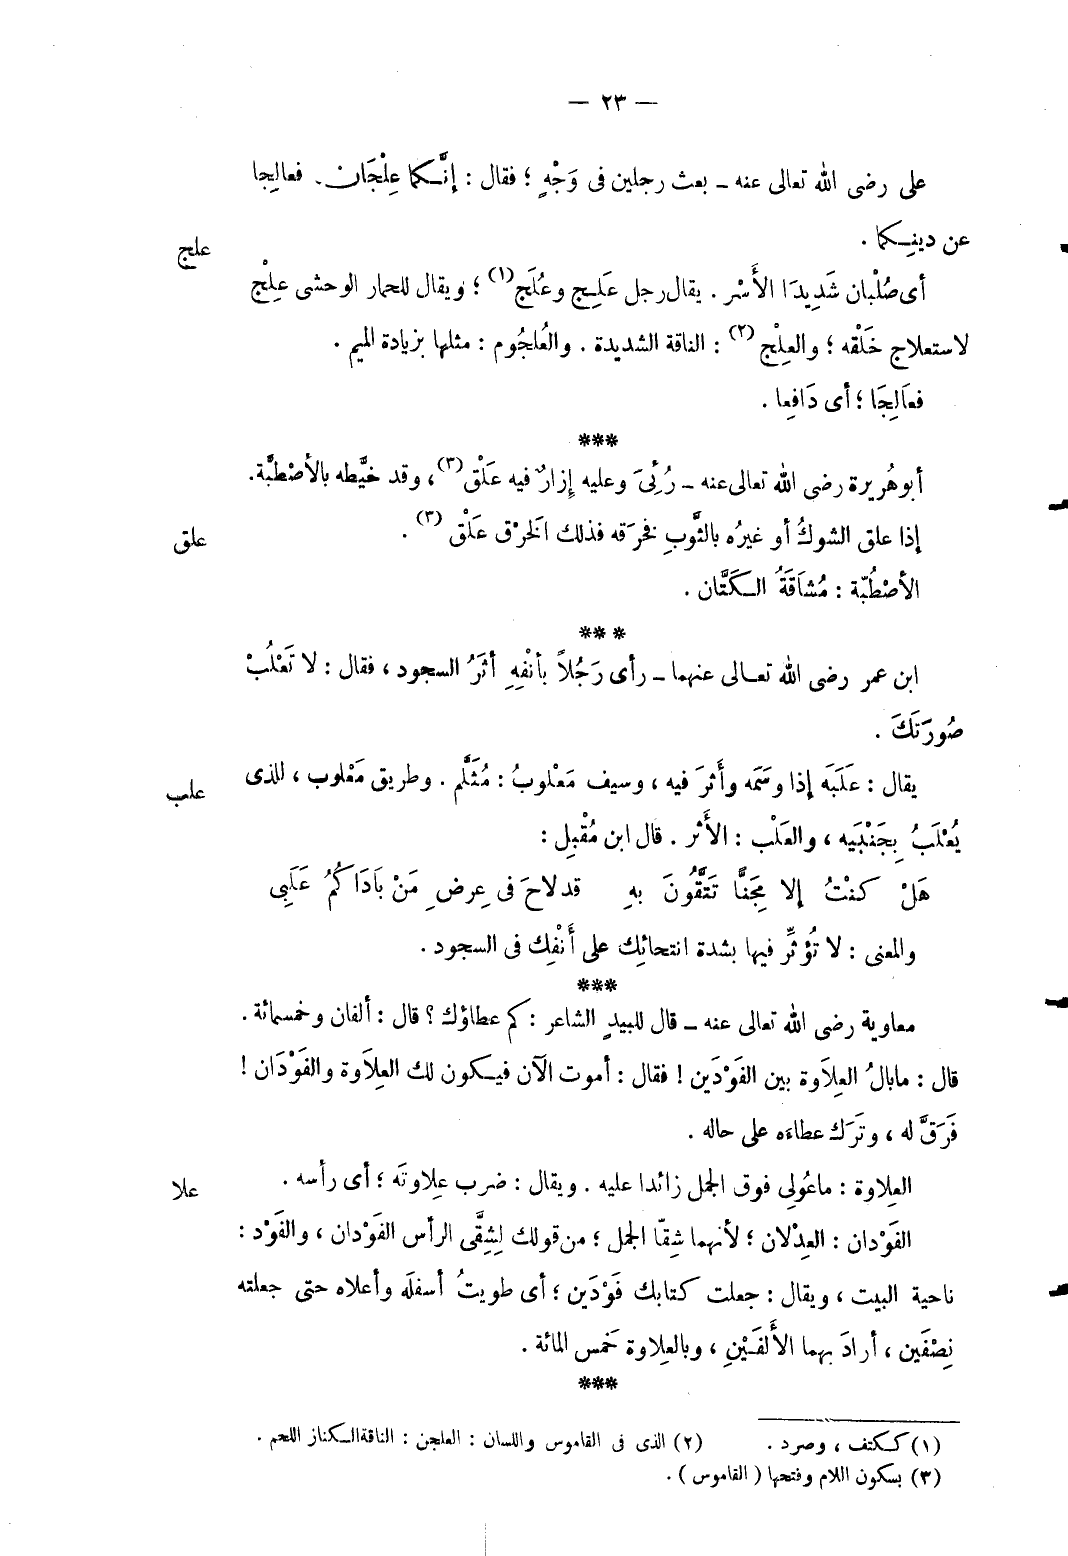 — ٢٣ —
على رضى الله تعالى عنه – بعث رجلين فى وَجْهٍ ؛ فقال : إنَّكما عِلْجَان . فعالِجا
عن دينِكما .
علج
أى صُلْبان شَدِيدَا الأَسْر . يقال رجل عَلِج وعُلَج (١) ؛ ويقال للحمار الوحشى عِلْج
لاستعلاج خَلْقه ؛ والعِلْج (٢) : الناقة الشديدة . والعُلجُوم : مثلها بزيادة الميم .
فعَالِجَا ؛ أى دَافِعا .
***
أبو هُريرة رضى الله تعالى عنه – رُئِىَ وعليه إزارٌ فيه عَلْق (٣) ، وقد خيَّطه بالأصْطبَّة .
إذا علق الشوكُ أو غيرُه بالثَّوبِ فخرَقه فذلك الخرْق عَلْق (٣) .
علق
الأصْطُبّة : مُشَاقَةُ الكَتَّان .
***
ابن عمر رضى الله تعالى عنهما – رأى رَجُلاً بأنْفِهِ أثَرُ السجود ، فقال : لا تَعْلُبْ
صُورَتَكَ .
يقال : عَلَبَه إذا وسَمَه وأَثرَ فيه ، وسيف مَعْلوبُ : مُثَلَّم . وطريق مَعْلوب ، للذى
علب
يُعْلَبُ بِجَنْبَيه ، والعَلْب : الأَثر . قال ابن مُقْبِل :
هَلْ كنْتُ إلا مِجَنًّا تَتَّقُونَ بهِ قد لاحَ فى عِرضِ مَنْ بَادَاكُمُ عَلَبِى
والمعنى : لا تُؤثِّر فيها بشدة انتحائِك على أَنْفِك فى السجود .
***
معاوية رضى الله تعالى عنه – قال للبيدٍ الشاعر : كم عطاؤك ؟ قال : ألفان وخمسمائة .
قال : ما بالُ العِلاَوة بين الفَوْدَين ! فقال : أموت الآن فيكون لك العِلاَوة والفَوْدَان !
فَرَقَّ له ، وتَرَك عطاءه على حاله .
العِلاوة : ما عُولِى فوق الجمل زائدا عليه . ويقال : ضرب عِلاوتَه ؛ أى رأسه .
علا
الفَوْدان : العِدْلان ؛ لأنهما شِقّا الجمل ؛ من قولك لِشِقَّى الرأس الفَوْدان ، والفَوْد :
ناحية البيت ، ويقال : جعلت كتابك فَوْدَين ؛ أى طويتُ أسفلَه وأعلاه حتى جعلته
نِصْفَين ، أرادَ بهما الأَلفَيْنِ ، وبالعِلاوة خَمس المائة .
***
(١) ككتف ، وصرد . (٢) الذى فى القاموس واللسان : العلجن : الناقة الكناز اللحم .
(٣) بسكون اللام وفتحها ( القاموس ) .